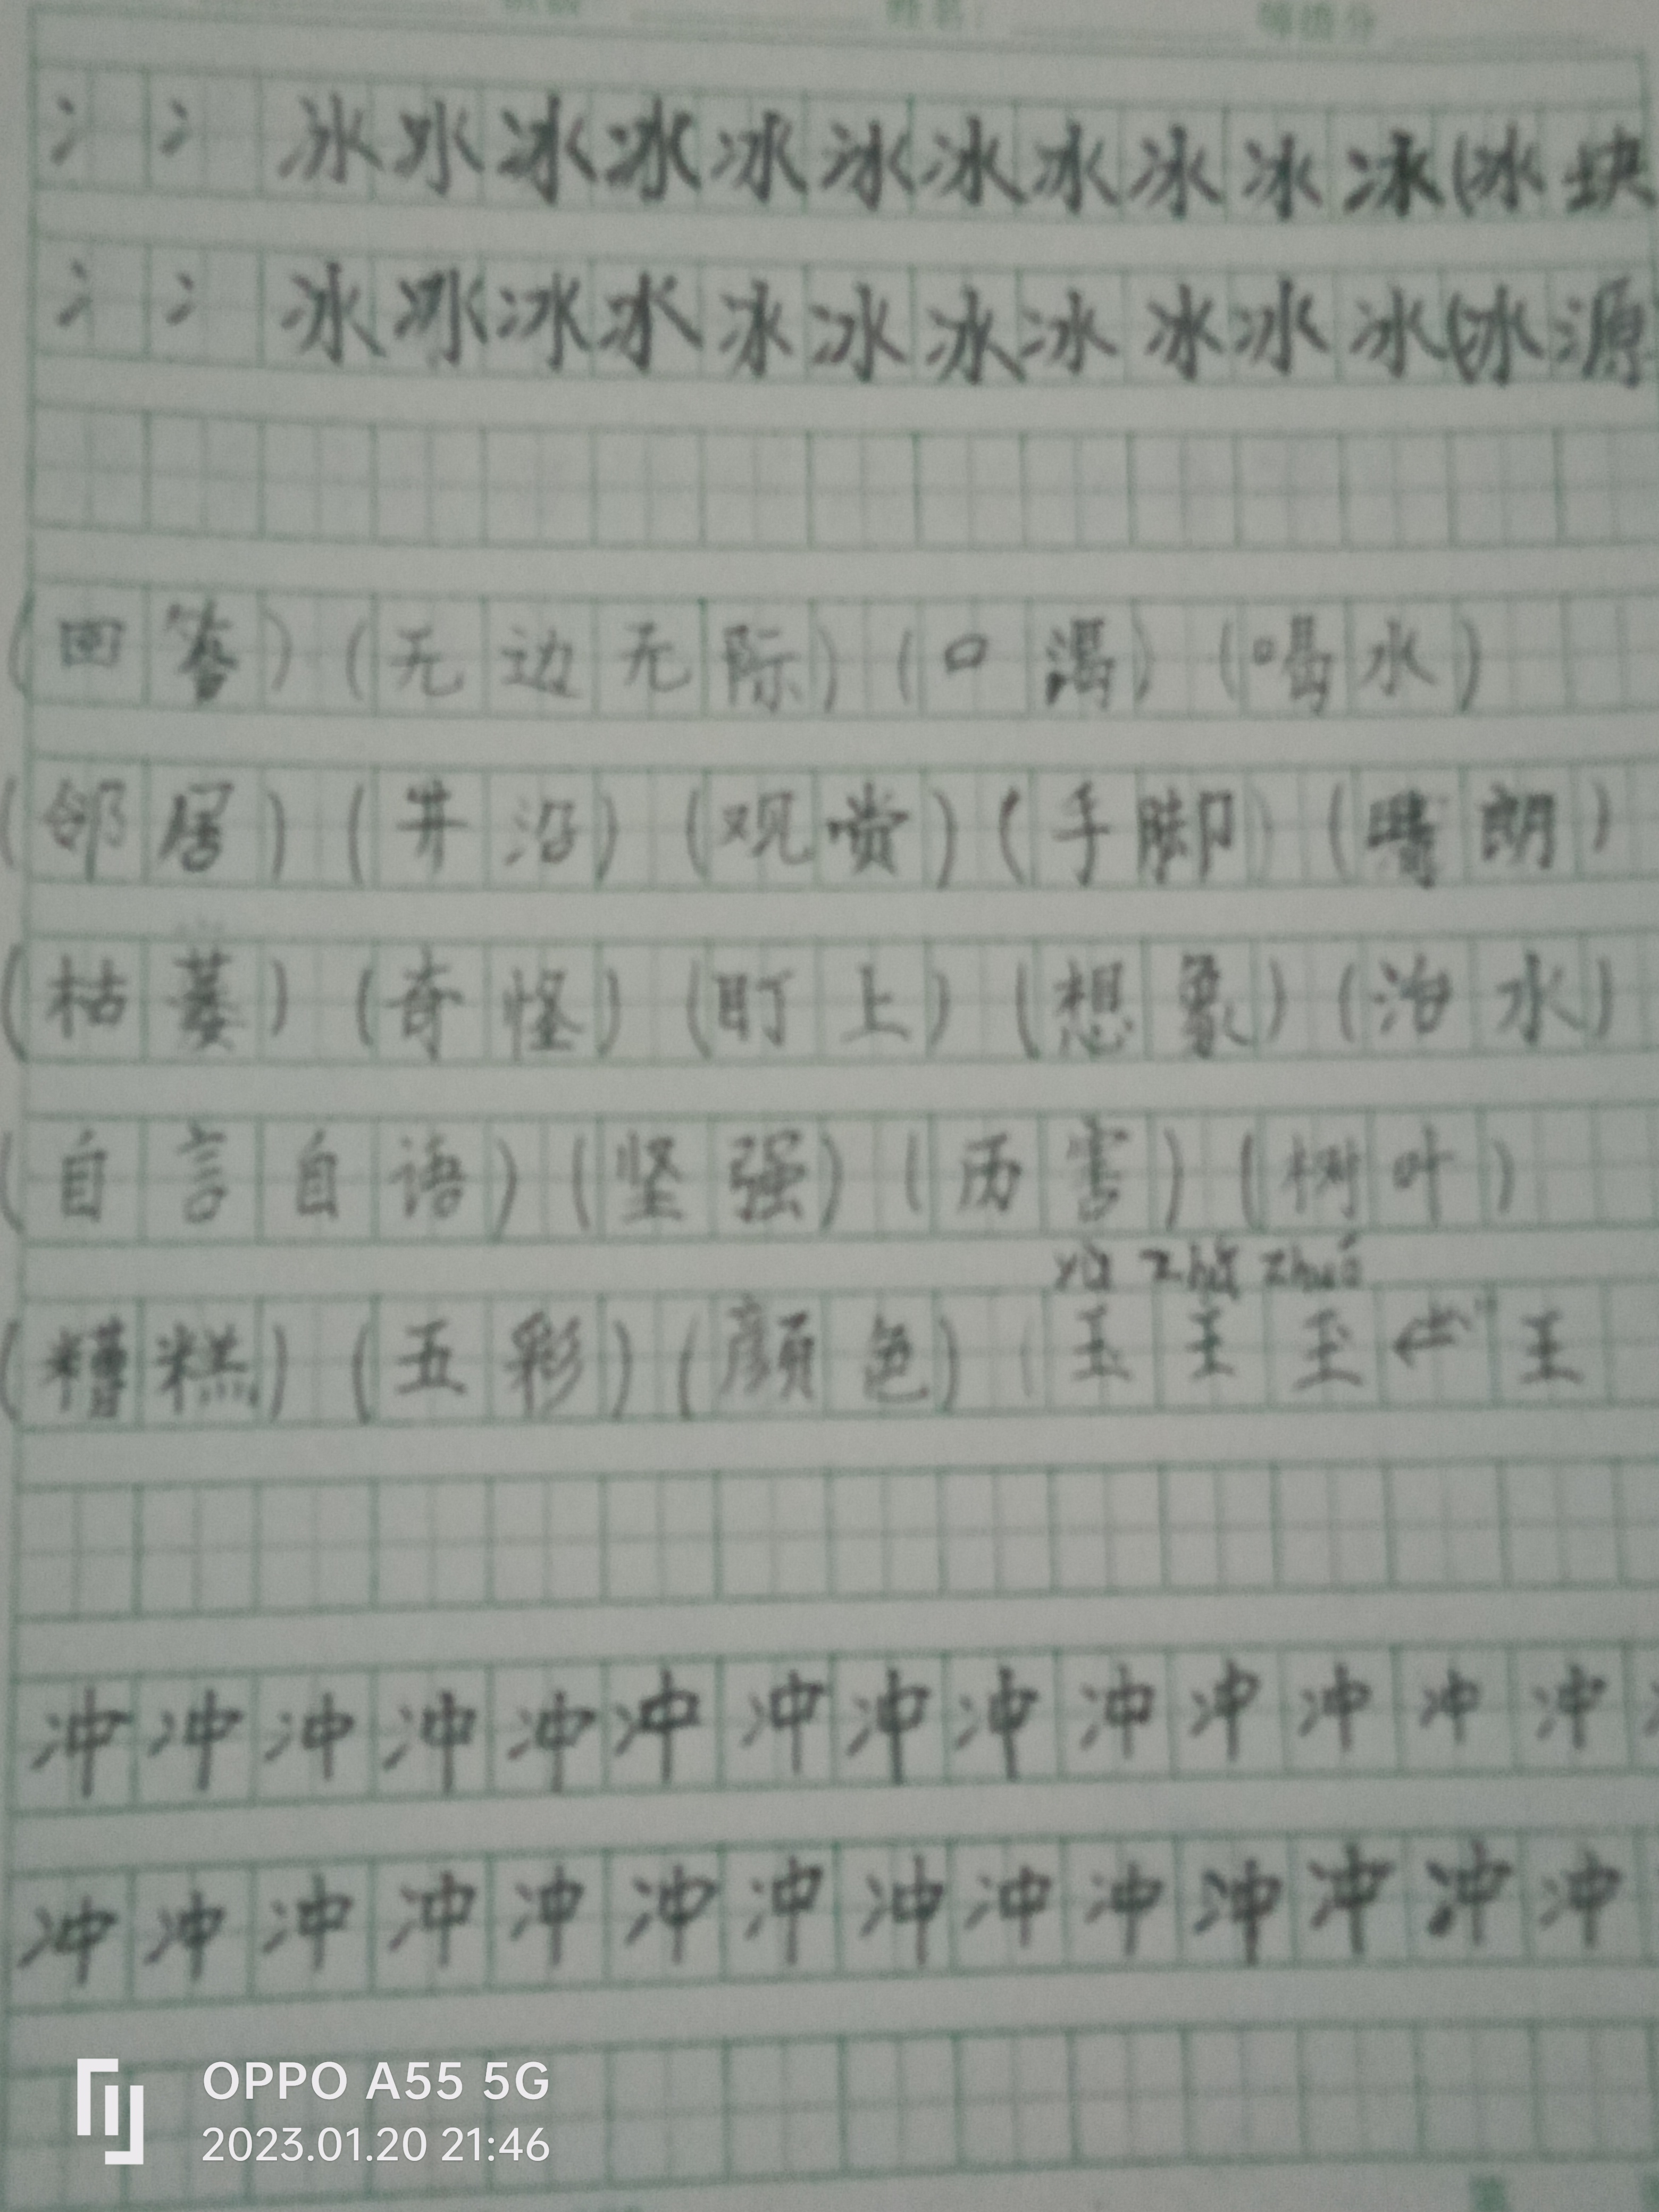 姓名：
冫 冫 冰 冰 冰 冰 冰 冰 冰 冰 冰 冰 冰 (冰 块
冫 冫 冰 冰 冰 冰 冰 冰 冰 冰 冰 冰 冰 (冰 源
(回答) (无边无际) (口渴) (喝水)
(邻居) (井沿) (观赏) (手脚) (晴朗)
(枯萎) (奇怪) (盯上) (想象) (治水)
(自言自语) (坚强) (历害) (树叶)
(糟糕) (五彩) (顔色) (
冲 冲 冲 冲 冲 冲 冲 冲 冲 冲 冲 冲 冲 冲
冲 冲 冲 冲 冲 冲 冲 冲 冲 冲 冲 冲 冲 冲
OPPO A55 5G
2023.01.20 21:46